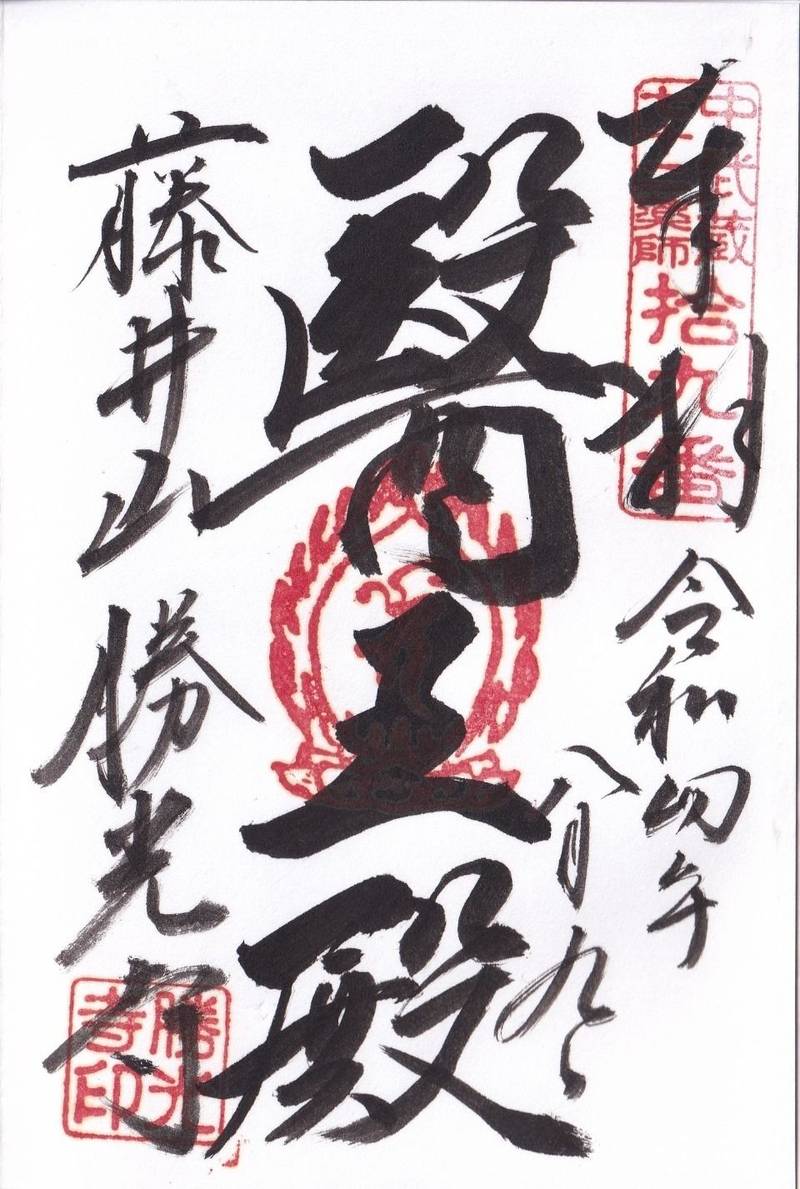 奉拝
中武蔵
七十二薬師
拾九番
令和四年
八月九日
醫王殿
藤井山 勝光寺
勝光
寺印